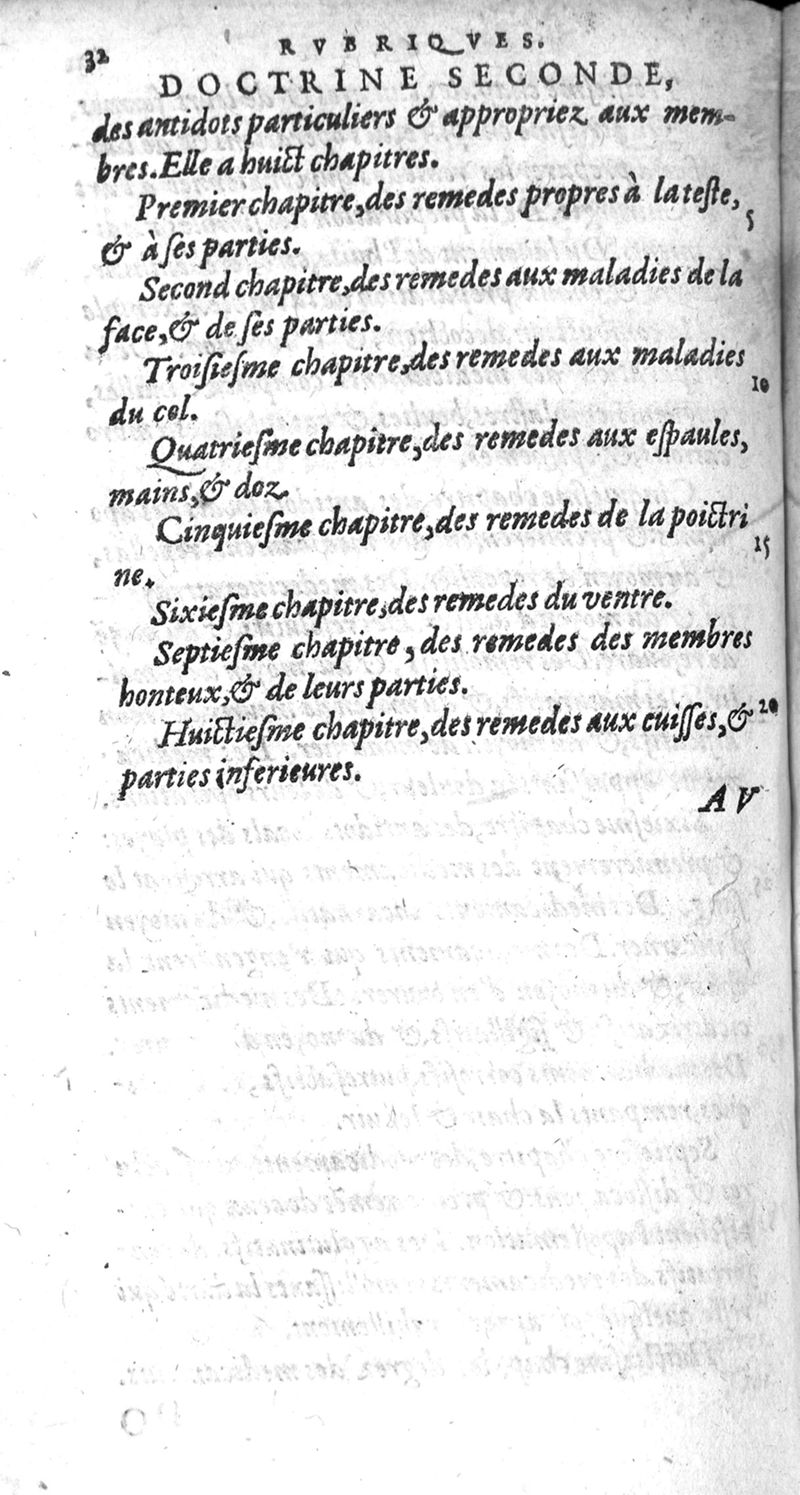 32
RVBRIQVES.
DOCTRINE SECONDE,
des antidots particuliers & appropriez aux mem-
bres. Elle a huict chapitres.
Premier chapitre, des remedes propres à la teſte,
5
& à ſes parties.
Second chapitre, des remedes aux maladies de la
face, & de ſes parties.
Troiſieſme chapitre, des remedes aux maladies
10
du col.
Quatrieſme chapitre, des remedes aux eſpaules,
mains, & doz.
Cinquieſme chapitre, des remedes de la poictri
15
ne.
Sixieſme chapitre, des remedes du ventre.
Septieſme chapitre, des remedes des membres
honteux, & de leurs parties.
Huictieſme chapitre, des remedes aux cuiſſes, &
20
parties inferieures.
AV